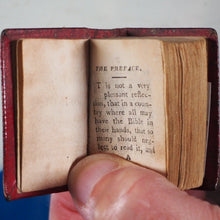 THE PREFACE.
T is not a very
pleasant reflec-
tion, that in a coun-
try where all may
have the Bible in
their hands, that so
many should neg-
lect to read it, and
A